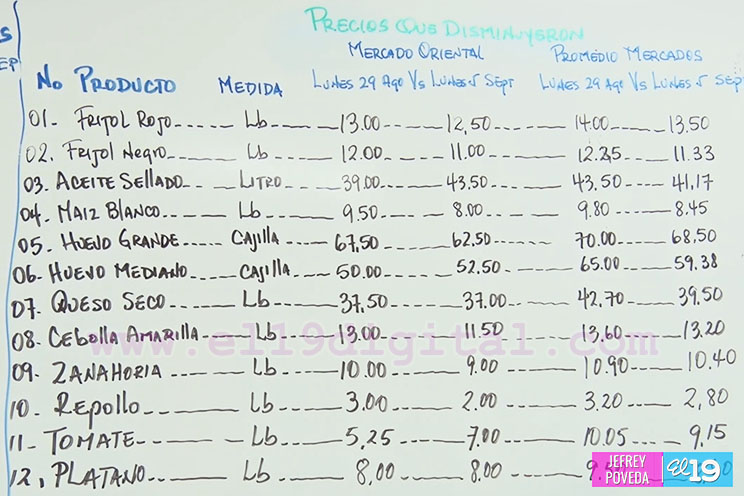 S
EP
PRECIOS QUE DISMINUYERON
MERCADO ORIENTAL PROMEDIO MERCADOS
No PRODUCTO MEDIDA LUNES 29 AGO VS LUNES 5 SEPT LUNES 29 AGO VS LUNES 5 SEPT
01- FRIJOL ROJO Lb 13.00 12,50 14.00 13,50
02. FRIJOL NEGRO Lb 12.00 11.00 12.25 11.33
03. ACEITE SELLADO LITRO 39.00 43,50 43,50 41,17
04. MAIZ BLANCO Lb 9,50 8.00 9.80 8.45
05- HUEVO GRANDE CAJILLA 67,50 62,50 70.00 68,50
06. HUEVO MEDIANO CAJILLA 50.00 52.50 65.00 59.38
07. QUESO SECO Lb 37,50 37.00 42,70 39,50
08. CEBOLLA AMARILLA Lb 13.00 11,50 13,60 13,20
www.el19digital.com
09. ZANAHORIA Lb 10.00 9,00 10,90 10,40
10. REPOLLO Lb 3.00 2.00 3.20 2,80
11- TOMATE Lb 5,25 7,00 10.05 9,15
12, PLATANO Lb 8,00 8.00
JEFREY POVEDA El 19